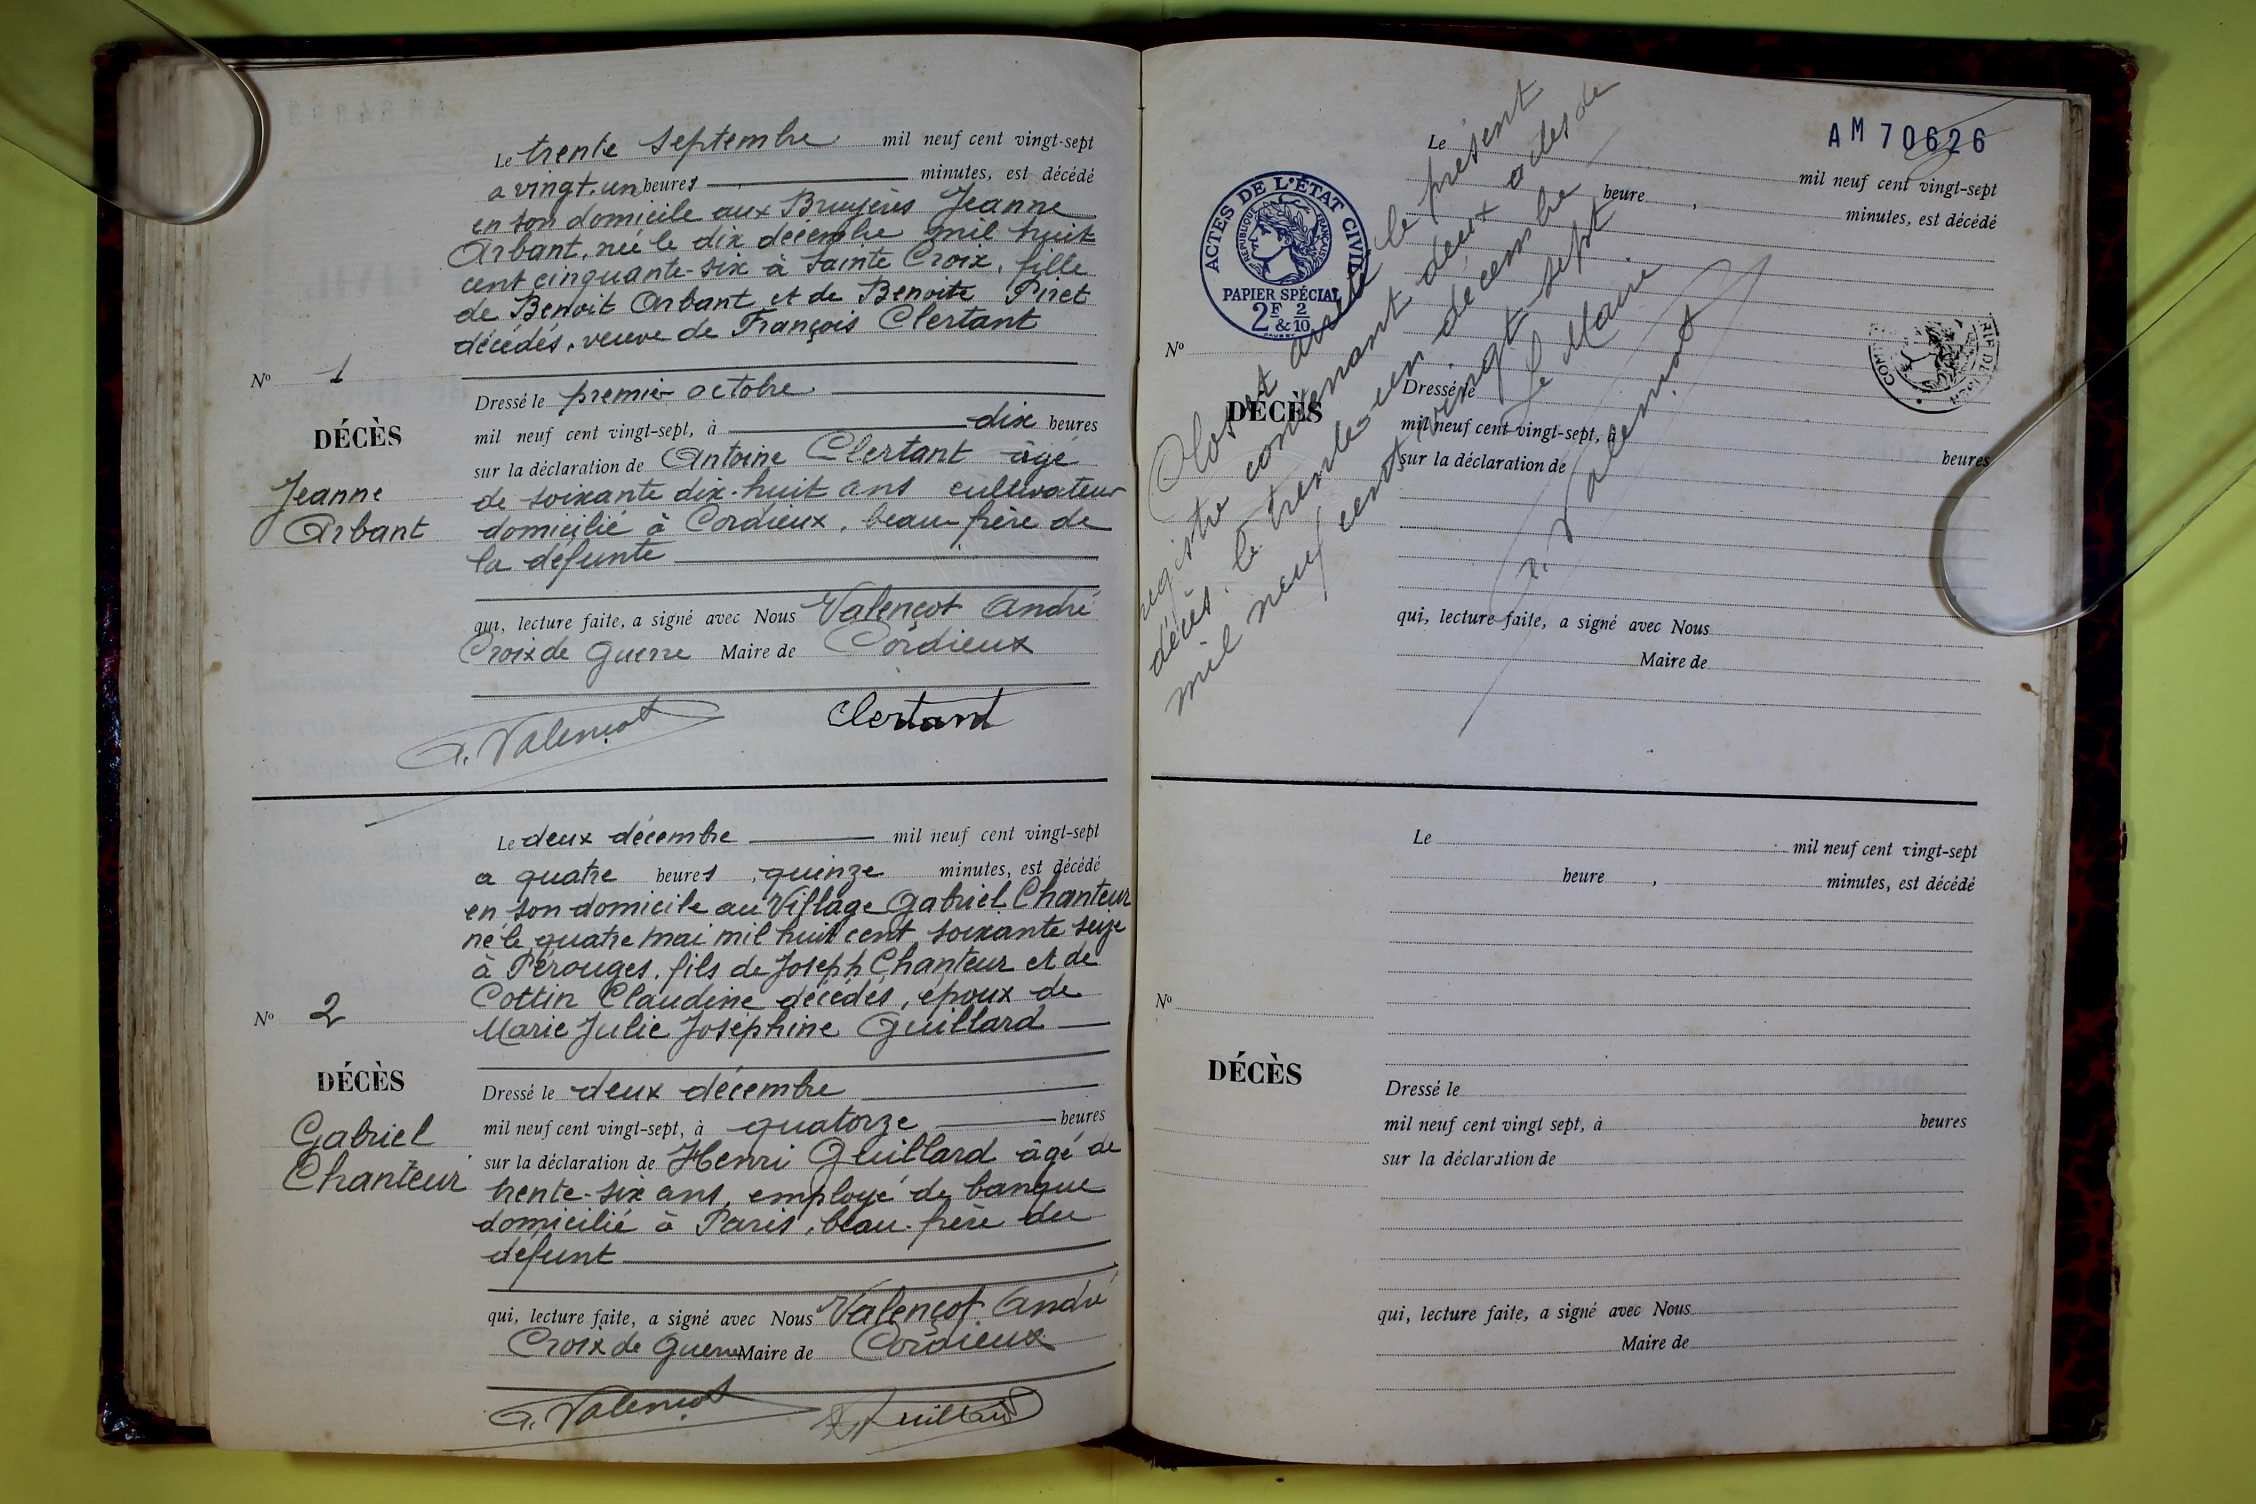 Le trente septembre mil neuf cent vingt-sept
a vingt-un heures minutes, est décédé
en son domicile aux Bruyères Jeanne
Arbant, née le dix décembre mil huit
cent cinquante-six à Sainte Croix, fille
de Benoit Arbant et de Benoite Piret
décédés, veuve de François Clertant
No 1
DÉCÈS
Jeanne
Arbant
Dressé le premier octobre
mil neuf cent vingt-sept, à dix heures
sur la déclaration de Antoine Clertant âgé
de soixante dix-huit ans cultivateur
domicilié à Cordieux, beau-frère de
la défunte
qui, lecture faite, a signé avec Nous Valençot André
Croix de Guerre Maire de Cordieux
A. Valençot Clertant
Le deux décembre mil neuf cent vingt-sept
a quatre heures, quinze minutes, est décédé
en son domicile au Village Gabriel Chanteur
né le quatre mai mil huit cent soixante seize
à Pérouges, fils de Joseph Chanteur et de
Cottin Claudine décédés, époux de
Marie Julie Joséphine Guillard
No 2
DÉCÈS
Gabriel
Chanteur
Dressé le deux décembre
mil neuf cent vingt-sept, à quatorze heures
sur la déclaration de Henri Guillard âgé de
trente-six ans, employé de banque
domicilié à Paris, beau-frère du
défunt
qui, lecture faite, a signé avec Nous Valençot André
Croix de Guerre Maire de Cordieux
A. Valençot Guillard
AM 70626
ACTES DE L'ÉTAT CIVIL
RÉPUBLIQUE FRANÇAISE
PAPIER SPÉCIAL
2F & 2/10
Le mil neuf cent vingt-sept
heure , minutes, est décédé
No
DÉCÈS
Dressé le
mil neuf cent vingt-sept, à heures
sur la déclaration de
qui, lecture faite, a signé avec Nous
Maire de
Clos et arrêté le présent
registre contenant deux actes de
décès, le trente-un décembre
mil neuf cent vingt-sept
Le Maire
A. Valençot
Le mil neuf cent vingt-sept
heure , minutes, est décédé
No
DÉCÈS
Dressé le
mil neuf cent vingt sept, à heures
sur la déclaration de
qui, lecture faite, a signé avec Nous
Maire de